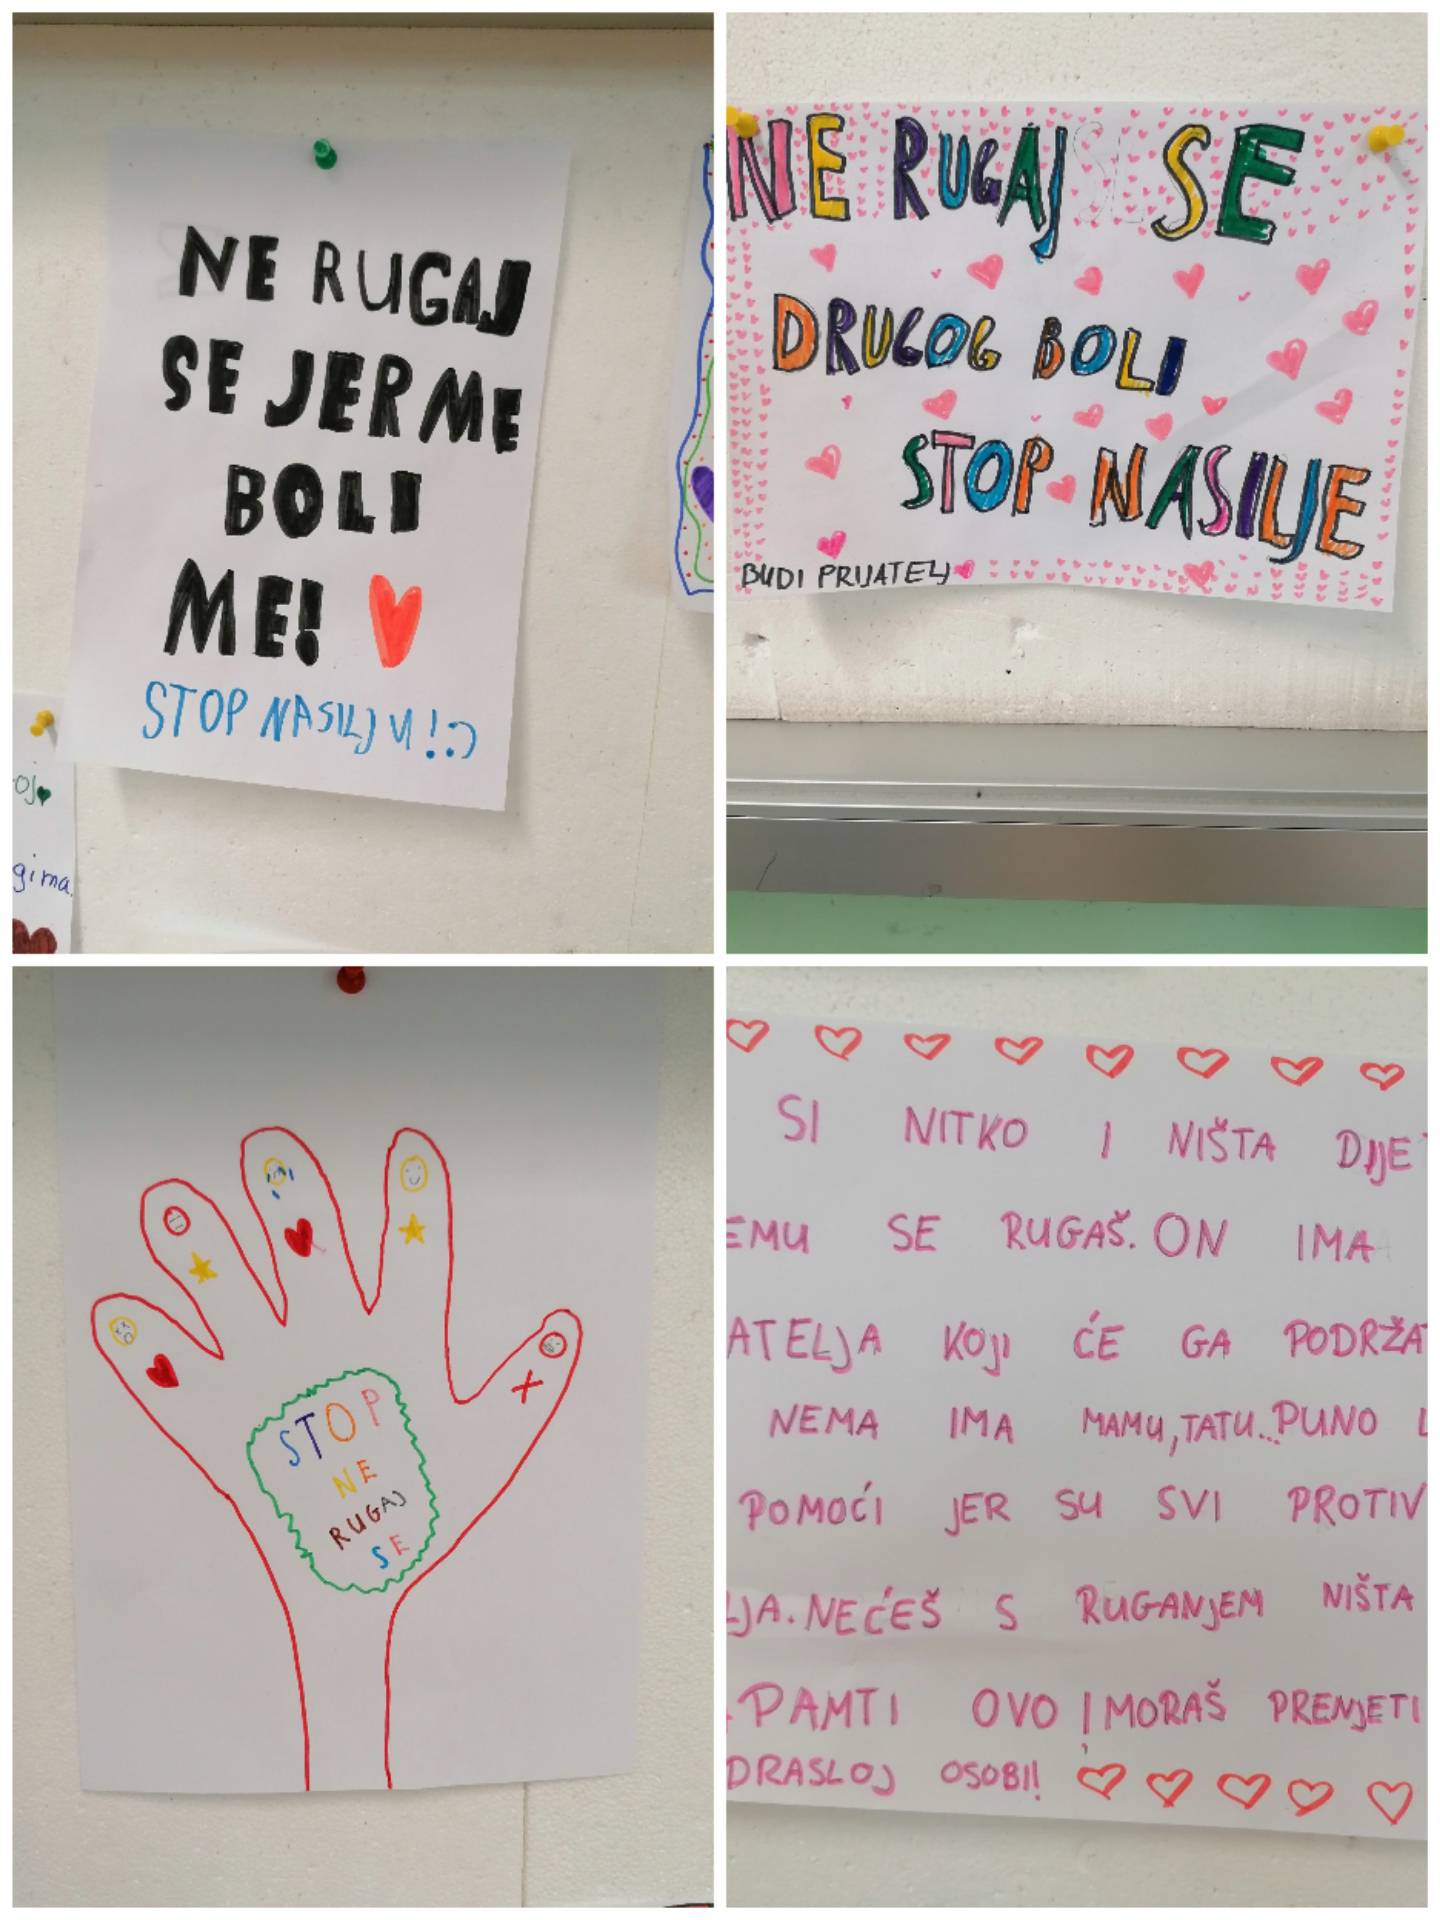 NE RUGAJ
SE JER ME
BOLI
ME!
STOP NASILJU!:)
OJ
gima.
NE RUGAJ SE
DRUGOG BOLI
STOP NASILJE
BUDI PRIJATELJ
STOP
NE
RUGAJ
SE
SI NITKO I NIŠTA DIJE
EMU SE RUGAŠ. ON IMA
ATELJA KOJI ĆE GA PODRŽAT
NEMA IMA MAMU, TATU...PUNO L
POMOĆI JER SU SVI PROTIV
LJA. NEĆEŠ S RUGANJEM NIŠTA
PAMTI OVO I MORAŠ PRENJETI
DRASLOJ OSOBI!